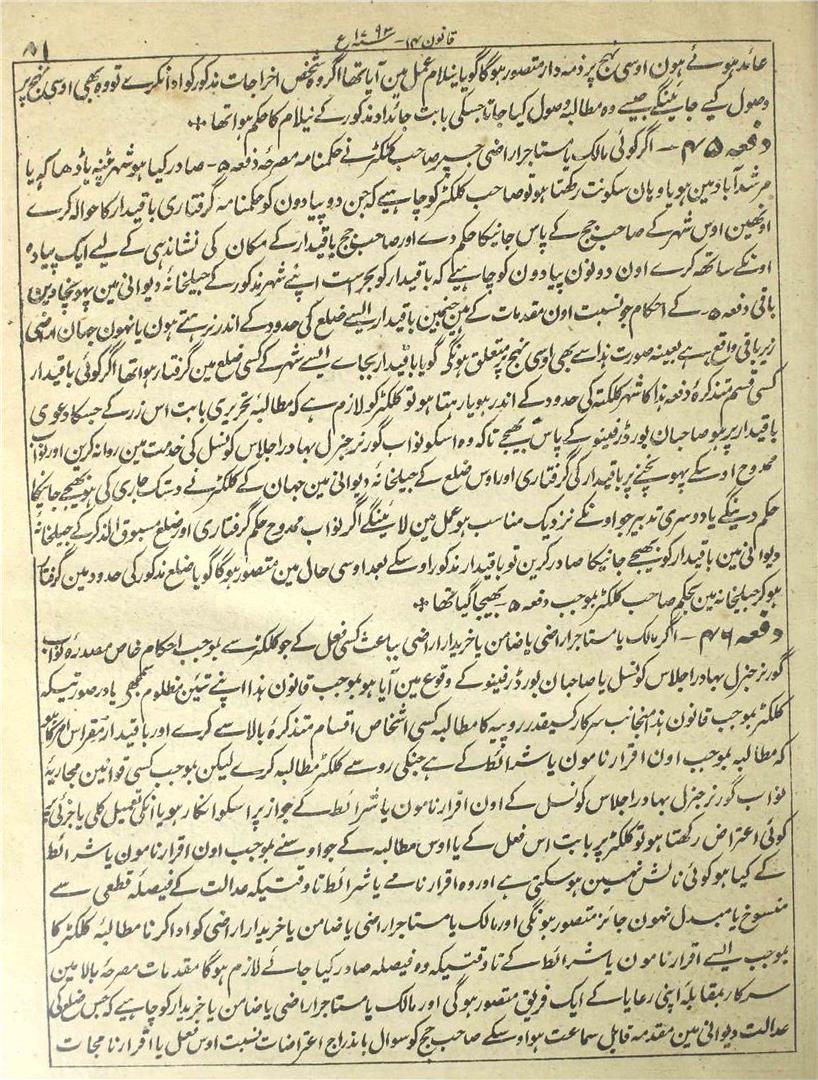 قانون ۱۴- سنہ ۱۷۹۳ ع
۵۱
عائد ہوئے ہون اوسی نہج پر ذمہ دار متصور ہوگا گویا نیلام عمل مین آیا تھا اگر وہ شخص اخراجات مذکور کو ادا نکرے تو وہ بھی اوسی نہج پر
وصول کیے جاینگے جیسے وہ مطالبہ وصول کیا جاتا جسکی بابت جائداد مذکور کے نیلام کا حکم ہوا تھا
دفعہ ۴۵ – اگر کوئی مالک یا مستاجر اراضی جسپر صاحب کلکٹر نے حکمنامہ مصرحۂ دفعہ ۵- صادر کیا ہو شہر پٹنہ یا ڈھاکہ یا
مرشدآباد مین ہو یا وہان سکونت رکھتا ہو تو صاحب کلکٹر کو چاہیے کہ جن دو پیادون کو حکمنامہ گرفتاری باقیدار کا حوالہ کرے
اونھین اوس شہر کے صاحب جج کے پاس جانیکا حکم دے اور صاحب جج باقیدار کے مکان کی نشاندہی کے لیے ایک پیادہ
اونکے ساتھ کرے اون دونون پیادون کو چاہیے کہ باقیدار کو بحراست اپنے شہر مذکور کے جیلخانۂ دیوانی مین پہونچادین
باقی دفعہ ۵- کے احکام جو نسبت اون مقدمات کے ہین جنمین باقیدار ایسے ضلع کی حدود کے اندر رہتے ہون یا نہون جہان اراضی
زیر باقی واقع ہے بعینہ صورت ہذا سے بھی اوسی نہج پر متعلق ہونگے گویا باقیدار بجاے ایسے شہر کے کسی ضلع مین گرفتار ہوا تھا اگر کوئی باقیدار
کسی قسم متذکرۂ دفعہ ہذا کا شہر کلکتہ کی حدود کے اندر ہو یا رہتا ہو تو کلکٹر کو لازم ہے کہ مطالبۂ تحریری بابت اس زر کے جسکا دعوی
باقیدار پر ہو صاحبان بورڈ رفینو کے پاس بھیجے تاکہ وہ اسکو نواب گورنر جنرل بہادر اجلاس کونسل کی خدمت مین روانہ کرین اور نواب
ممدوح اوسکے پہونچنے پر باقیدار کی گرفتاری اور اوس ضلع کے جیلخانۂ دیوانی مین جہان کے کلکٹر نے دستک جاری کی ہو بھیجے جانیکا
حکم دینگے یا دوسری تدبیر جو اونکے نزدیک مناسب ہو عمل مین لاینگے اگر نواب ممدوح حکم گرفتاری اور ضلع مسبوق الذکر کے جیلخانۂ
دیوانی مین باقیدار کو بھیجے جانیکا صادر کرین تو باقیدار مذکور اوسکے بعد اوسی حال مین متصور ہوگا گویا ضلع مذکور کی حدود مین گرفتار
ہوکر جیلخانہ مین بحکم صاحب کلکٹر بموجب دفعہ ۵- بھیجا گیا تھا
دفعہ ۴۶ – اگر مالک یا مستاجر اراضی یا ضامن یا خریدار اراضی بباعث کسی فعل کے جو کلکٹر سے بموجب احکام خاص مصدرۂ نواب
گورنر جنرل بہادر اجلاس کونسل یا صاحبان بورڈ رفینو کے وقوع مین آیا ہو بموجب قانون ہذا اپنے تیئن مظلوم سمجھے یا در صورتیکہ
کلکٹر بموجب قانون ہذا منجانب سرکار کسیقدر روپیہ کا مطالبہ کسی اشخاص اقسام متذکرۂ بالا سے کرے اور باقیدار مقر اس امر کا ہو
کہ مطالبہ بموجب اون اقرار نامون یا شرائط کے ہے جنکی رو سے کلکٹر مطالبہ کرے لیکن بموجب کسی قوانین مجاریۂ
نواب گورنر جنرل بہادر اجلاس کونسل کے اون اقرار نامون یا شرائط کے جواز پر اسکو انکار ہو یا انکی تعمیل کلی یا جزئی کا
کوئی اعتراض رکھتا ہو تو کلکٹر پر بابت اس فعل کے یا اوس مطالبہ کے جو اوسنے بموجب اون اقرار نامون یا شرائط
کے کیا ہو کوئی نالش نہین ہوسکتی ہے اور وہ اقرار نامے یا شرائط تا وقتیکہ عدالت کے فیصلۂ قطعی سے
منسوخ یا مبدل نہون جائز متصور ہونگی اور مالک یا مستاجر اراضی یا ضامن یا خریدار اراضی کو ادا کرنا مطالبۂ کلکٹر کا
بموجب ایسے اقرار نامون یا شرائط کے تا وقتیکہ وہ فیصلہ صادر کیا جائے لازم ہوگا مقدمات مصرحۂ بالا مین
سرکار بمقابلہ اپنی رعایا کے ایک فریق متصور ہوگی اور مالک یا مستاجر اراضی یا ضامن یا خریدار کو چاہیے کہ جس ضلع کی
عدالت دیوانی مین مقدمہ قابل سماعت ہو اوسکے صاحب جج کو سوال باندراج اعتراضات نسبت اوس فعل یا اقرار نامجات